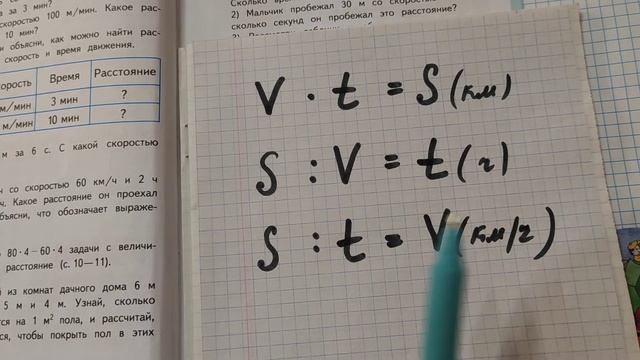 за 3 мин?
скоростью 100 м/мин. Какое рас-
10 мин?
и объясни, как можно найти рас-
скорость и время движения.
корость Время Расстояние
м/мин 3 мин ?
м/мин 10 мин ?
м за 6 с. С какой скоростью
со скоростью 60 км/ч и 2 ч
ч. Какое расстояние он проехал
объясни, что обозначает выраже-
80·4−60·4 задачи с величи-
расстояние (с. 10—11).
из комнат дачного дома 6 м
5 м и 4 м. Узнай, сколько
тся на 1 м² пола, и рассчитай,
ся, чтобы покрыть пол в этих
2) Мальчик пробежал 30 м со
сколько секунд он пробежал это расстояние?
V · t = S (км)
S : V = t (ч)
S : t = V (км/ч)